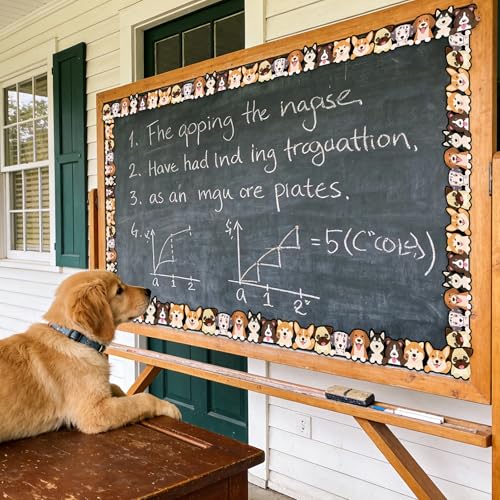 1. Fhe qpping the nagise.
2. Have had lnd ing traguattion,
3. as an mgu are pıates.
G.
a 1 2
a 1 2
= 5(C"COLE))